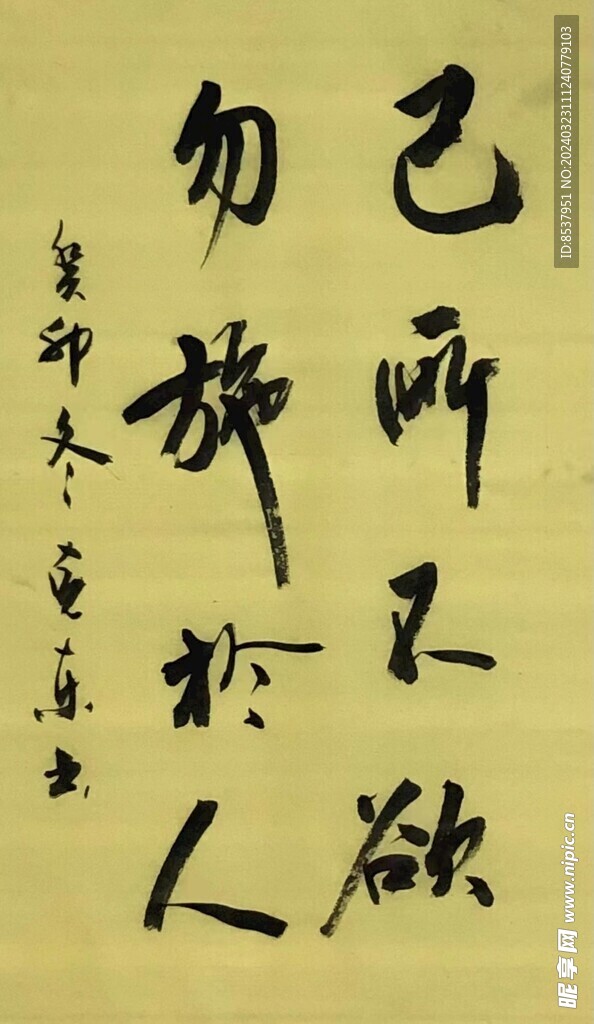 己所不欲
勿施於人
癸卯冬克东书
ID:8537951 NO:20240323111240779103
昵享网 www.nipic.cn